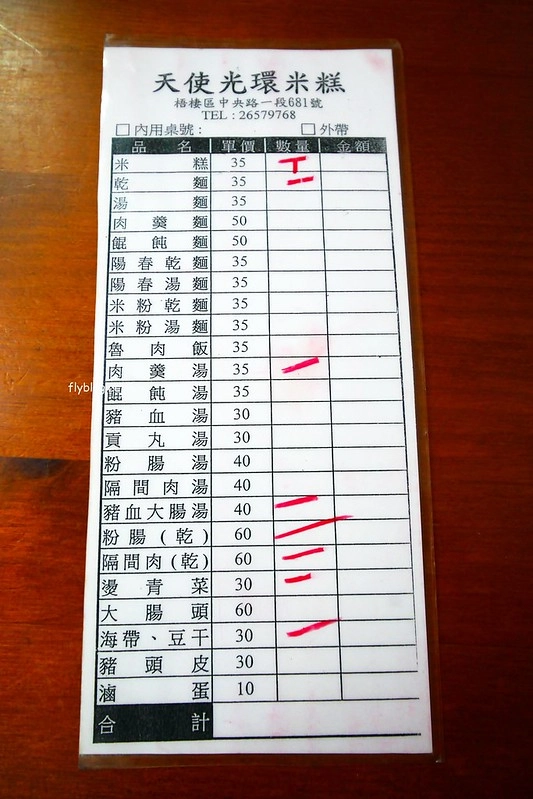 天使光環米糕
梧棲區中央路一段681號
TEL : 26579768
內用桌號 : 外帶
品名 單價 數量 金額
米糕 35 T
乾麵 35 一
湯麵 35
肉羹麵 50
餛飩麵 50
陽春乾麵 35
陽春湯麵 35
米粉乾麵 35
米粉湯麵 35
魯肉飯 35
肉羹湯 35 一
flybl
餛飩湯 35
豬血湯 30
貢丸湯 30
粉腸湯 40
隔間肉湯 40
豬血大腸湯 40 一
粉腸(乾) 60 一
隔間肉(乾) 60 一
燙青菜 30 一
大腸頭 60
海帶、豆干 30 一
豬頭皮 30
滷蛋 10
合計